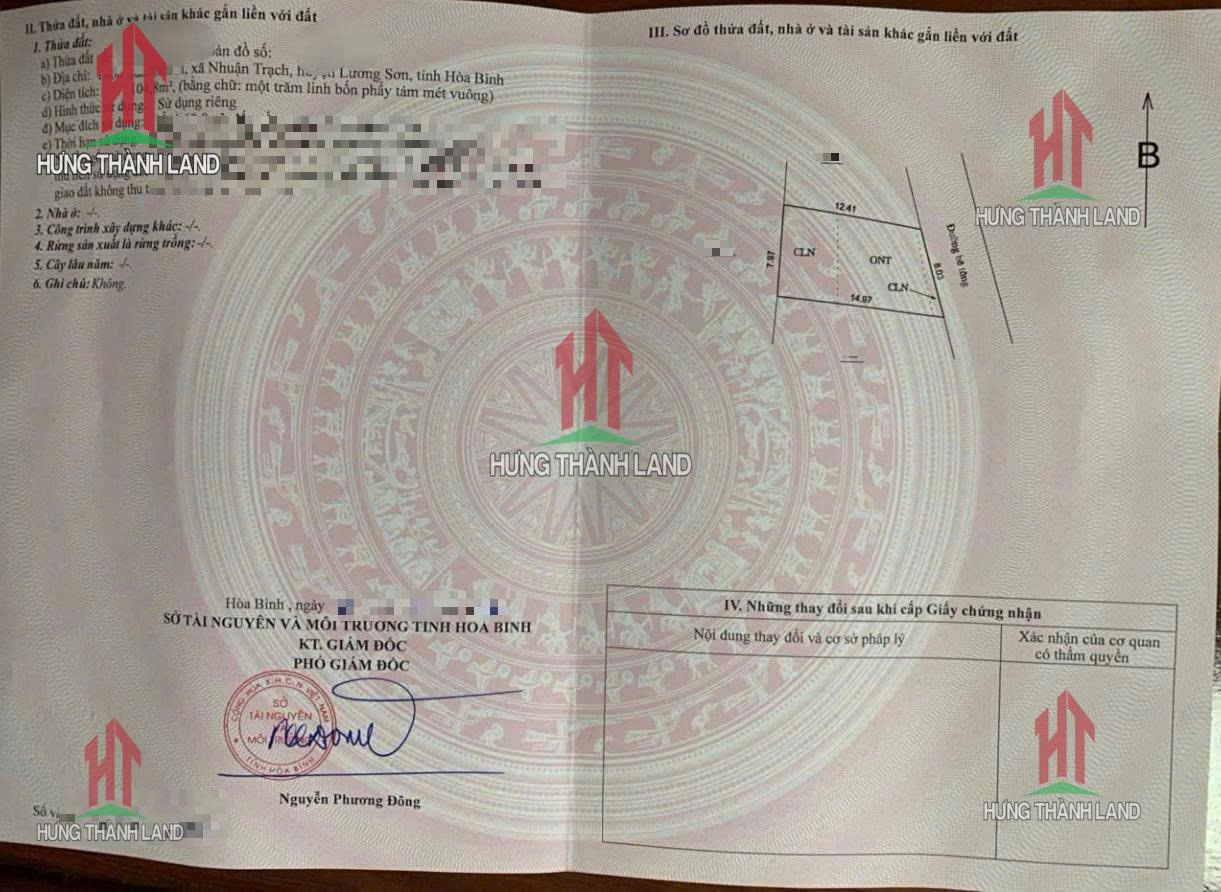 II. Thửa đất, nhà ở và tài sản khác gắn liền với đất
1. Thửa đất:
a) Thửa đất bản đồ số:
b) Địa chỉ: xã Nhuận Trạch, huyện Lương Sơn, tỉnh Hòa Bình
c) Diện tích: 104,8m², (bằng chữ: một trăm linh bốn phẩy tám mét vuông)
d) Hình thức sử dụng: Sử dụng riêng
đ) Mục đích sử dụng:
e) Thời hạn sử dụng:
HƯNG THÀNH LAND
giao đất không thu
2. Nhà ở: -/-.
3. Công trình xây dựng khác: -/-.
4. Rừng sản xuất là rừng trồng: -/-.
5. Cây lâu năm: -/-.
6. Ghi chú: Không.
Hòa Bình , ngày
SỞ TÀI NGUYÊN VÀ MÔI TRƯỜNG TỈNH HOÀ BÌNH
KT. GIÁM ĐỐC
PHÓ GIÁM ĐỐC
CỘNG HÒA X.H.C.N VIỆT NAM
SỞ
TÀI NGUYÊN
MÔI TRƯỜNG
TỈNH HÒA BÌNH
Nguyễn Phương Đông
Số
HƯNG THÀNH LAND
HƯNG THÀNH LAND
III. Sơ đồ thửa đất, nhà ở và tài sản khác gắn liền với đất
B
HƯNG THÀNH LAND
12.41
7.97
CLN
ONT
CLN
8.03
14.97
Đường bê tông
IV. Những thay đổi sau khi cấp Giấy chứng nhận
Nội dung thay đổi và cơ sở pháp lý
Xác nhận của cơ quan
có thẩm quyền
HƯNG THÀNH LAND